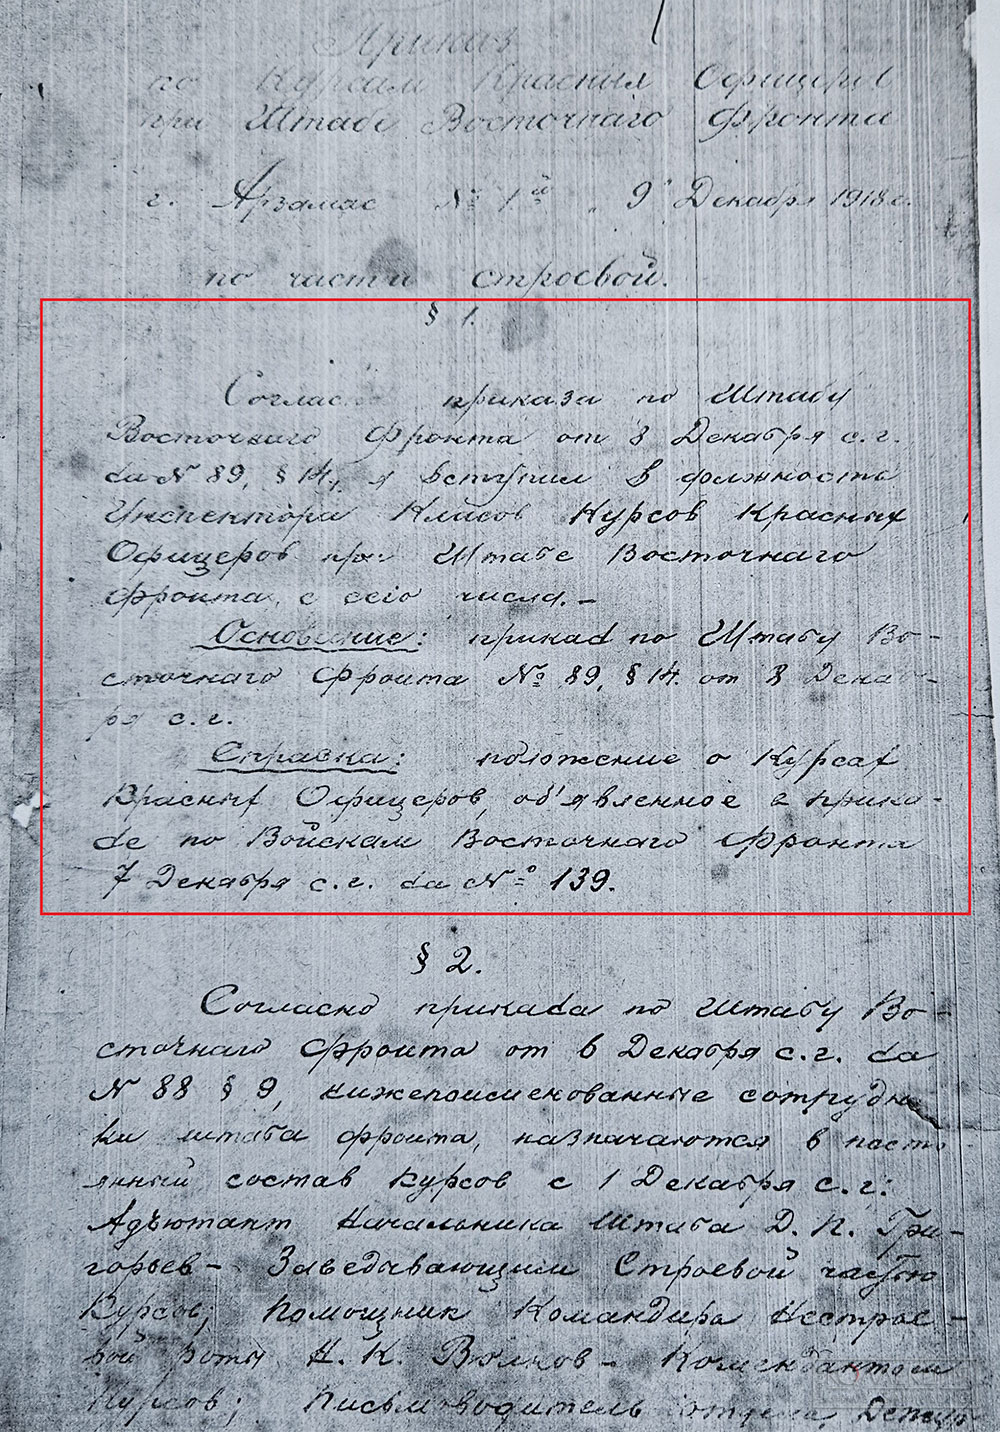 Приказ
по Курсам Красных Офицеров
при Штабе Восточнаго Фронта
г. Арзамас № 1й „9" Декабря 1918 г.
по части строевой.
§ 1.
Соглас приказа по Штабу
Восточнаго Фронта от 8 Декабря с.г.
за № 89, § 14, я вступил в должность
Инспектора Класов Курсов Красных
Офицеров при Штабе Восточнаго
Фронта, с сего числа. –
Основание: приказ по Штабу Во-
сточнаго Фронта № 89, § 14. от 8 Декаб-
ря с.г.
Справка: положение о Курсах
Красных Офицеров, об'явленное в прика-
зе по Войскам Восточнаго Фронта
7 Декабря с.г. за № 139.
§ 2.
Согласно приказа по Штабу Во-
сточнаго Фронта от 6 Декабря с.г. за
№ 88 § 9, нижепоименованные сотрудни
ки штаба фронта, назначаются в посто
янный состав Курсов с 1 Декабря с.г:
Адъютант Начальника Штаба Д. П. Гри-
горьев – Заведывающим Строевой частью
Курсов; Помощник Командира Нестрое-
вой роты Н. К. Волков – Комендантом
Курсов; Письмоводитель отдела